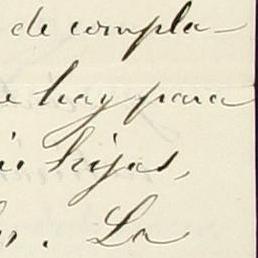 de compla-
hay para
hijas,
La